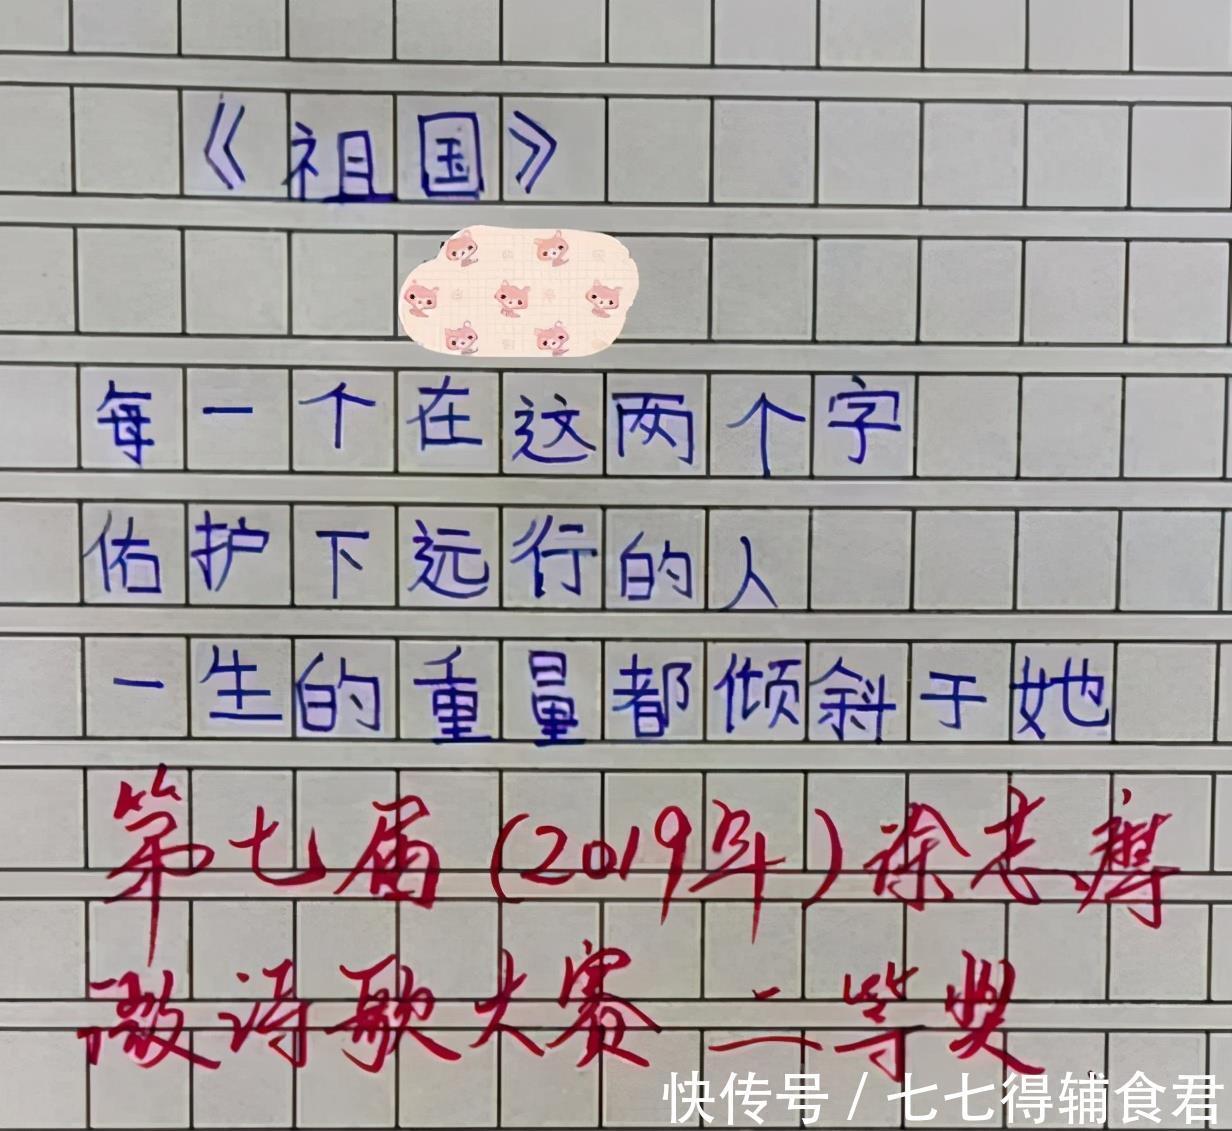 《祖国》
每一个在这两个字
佑护下远行的人
一生的重量都倾斜于她
第七届(2019年)徐志摩
微诗歌大赛二等奖
快传号/七七得辅食君